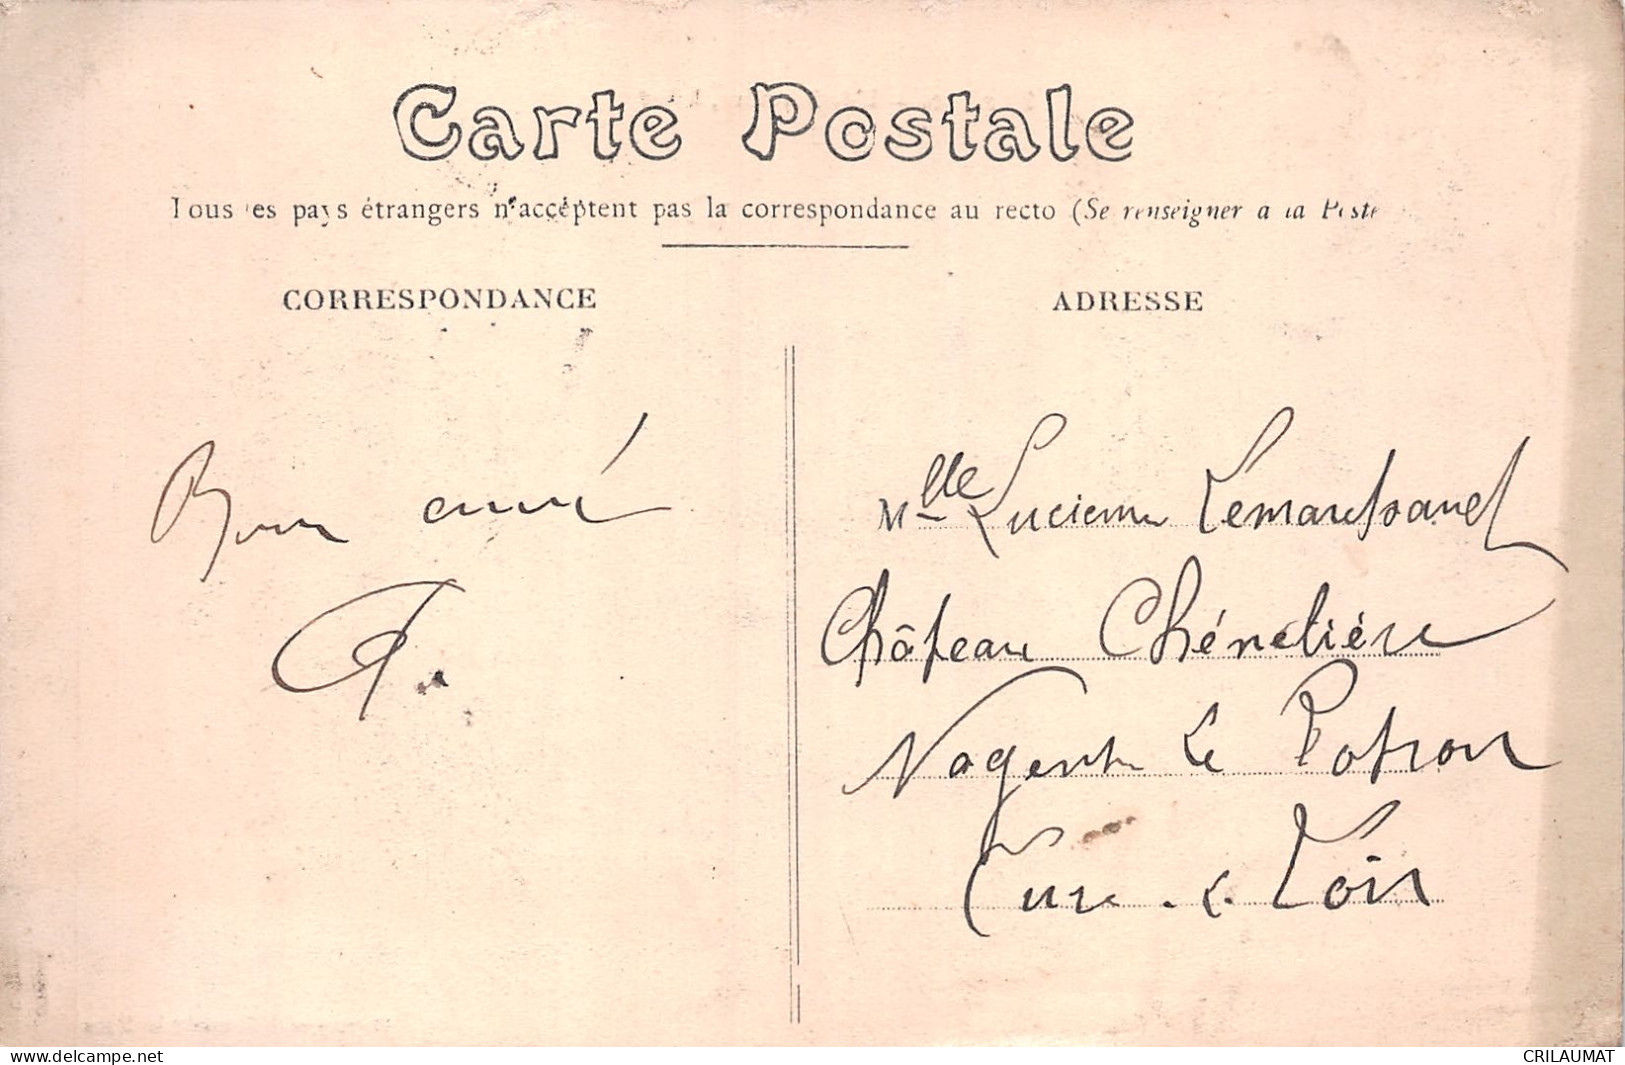 Carte Postale
Tous les pays étrangers n'acceptent pas la correspondance au recto (Se renseigner à la Poste
CORRESPONDANCE
ADRESSE
Bonne année
Mlle Lucienne Lemarchand
Château Chénelière
Nogent Le Rotrou
Eure & Loir
delcampe.net
CRILAUMAT